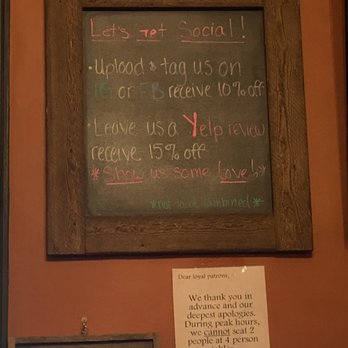 Let's get Social!
• Upload & tag us on
IG or FB receive 10% off
• Leave us a Yelp review
receive 15% off
*Show us some Love!*
*not to be combined*
Dear loyal patrons,
We thank you in
advance and our
deepest apologies.
During peak hours,
we cannot seat 2
people at 4 person